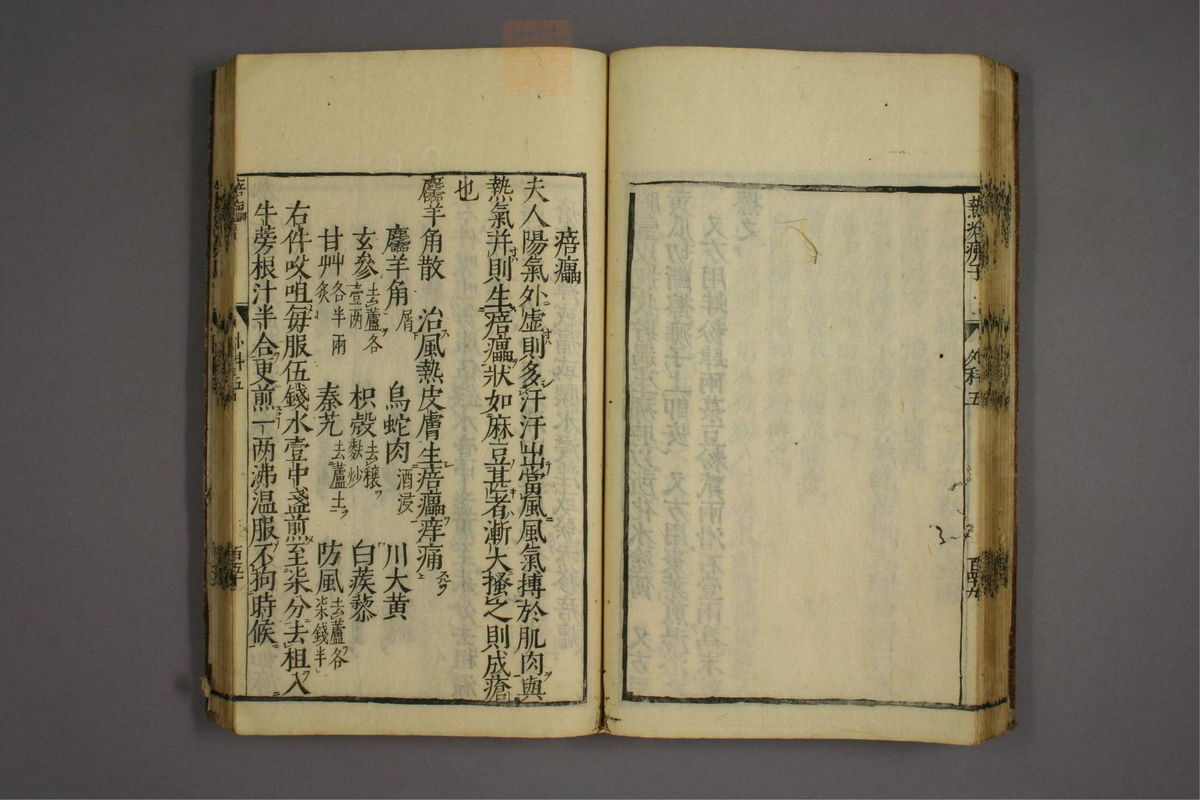 熱沸瘡子
外科五
百四十九
痞㿔
夫人陽氣外虛則多汗汗出當風風氣搏於肌肉與
熱氣并則生痞㿔狀如麻豆甚者漸大搔之則成瘡
也
麢羊角散　治風熱皮膚生痞㿔痒痛
麢羊角屑　烏蛇肉酒浸　川大黃
玄參去蘆各壹两　枳殼去穰麩炒　白蒺藜
甘艸炙各半兩　秦艽去蘆土　防風去蘆各柒錢半
右件㕮咀每服伍錢水壹中盞煎至柒分去柤入
牛蒡根汁半合更煎一两沸温服不拘時候
痞㿔
外科五
百五十